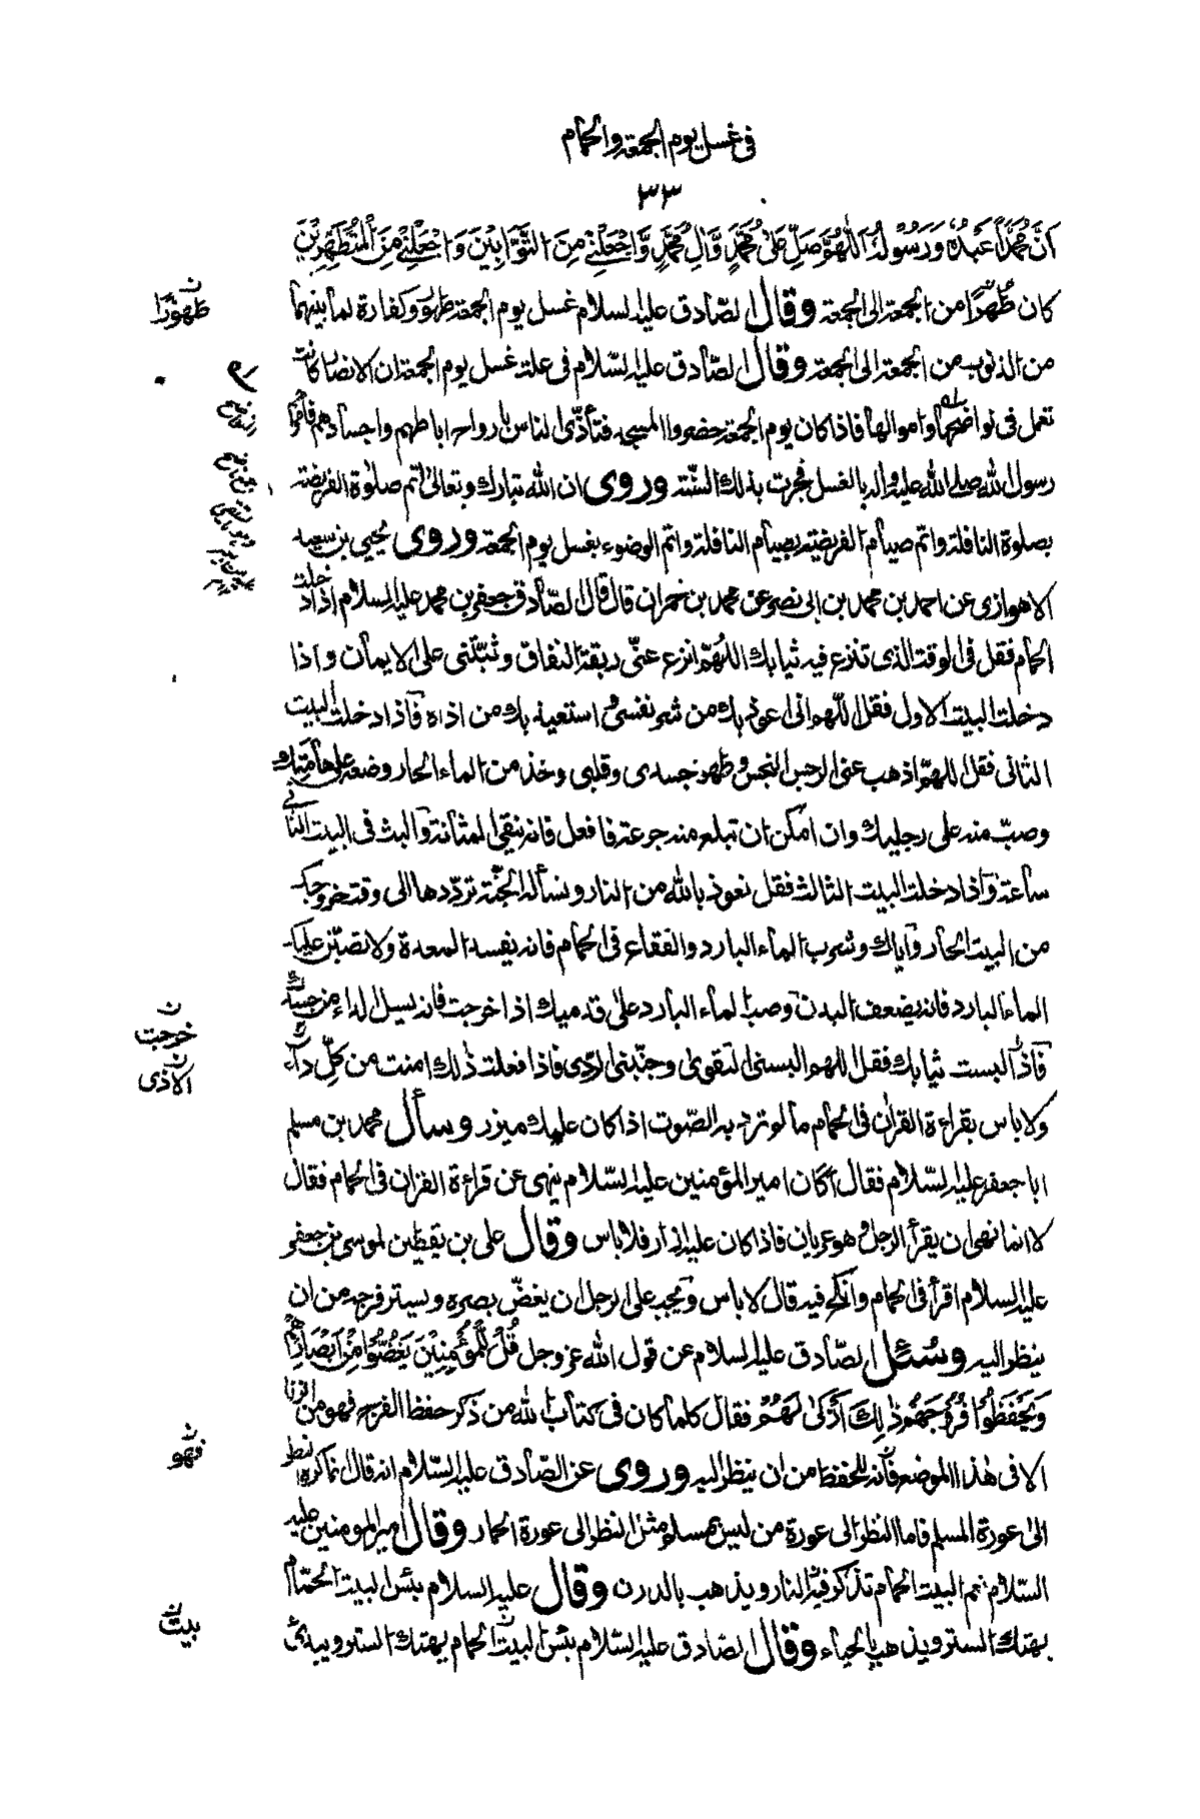 في غسل يوم الجمعة والحمام
٣٣
انَّ مُحَمَّداً عَبْدُهُ وَرَسُولُهُ اَللّٰهُمَّ صَلِّ عَلىٰ مُحَمَّدٍ وَّاٰلِ مُحَمَّدٍ وَّاجْعَلْنِيْ مِنَ التَّوَّابِيْنَ وَاجْعَلْنِيْ مِنَ الْمُتَطَهِّرِيْنَ
كان طُهْرًا من الجمعة الى الجمعة وقال الصّادق عليه السلام غسل يوم الجمعة طهور وكفارة لما بينهما
من الذنوب من الجمعة الى الجمعة وقال الصّادق عليه السّلام في علة غسل يوم الجمعة ان الانصار كانت
تعمل في نواضحها واموالها فاذا كان يوم الجمعة حضروا المسجد فتأذّى الناس بارواح اباطهم واجسادهم فأمر
رسول الله صلى الله عليه وآله بالغسل فجرت بذلك السّنّة وروى ان الله تبارك وتعالىٰ اتم صلوٰة الفريضة
بصلوة النافلة واتم صيام الفريضة بصيام النافلة واتم الوضوء بغسل يوم الجمعة وروى يحيى بن سعيد
الاهوازى عن احمد بن محمد بن ابى نصر عن محمد بن حمران قال قال الصّادق جعفر بن محمد عليه السلام اذا دخلت
الحمام فقل في الوقت الذى تنزع فيه ثيابك اللهُمّ انزع عنّى ربقة النفاق وثبّتنى على الايمان واذا
دخلت البيت الاول فقل اللّهم انى اعوذ بك من شر نفسى واستعيذ بك من اذاه فآذا دخلت البيت
الثانى فقل اللهمّ اذهب عنى الرجس النجس وطهر جسدى وقلبى وخذ من الماء الحار وضعه على هامتك و
وصبّ منه على رجليك وان امكن ان تبلع منه جرعة فافعل فانه ينقي المثانة والبث في البيت الثاني
ساعة وآذا دخلت البيت الثالث فقل نعوذ بالله من النار ونسأله الجنّة تردّدها الى وقت خروجك
من البيت الحار وآياك وشرب الماء البارد والفقاع في الحمام فانه يفسد المعدة ولا تصبّنّ عليك
الماء البارد فانه يضعف البدن وصب الماء البارد علىٰ قدميك اذا خرجت فانه يسيل الداء من جسدك
فآذا البست ثيابك فقل اللهم البسنى التقوىٰ وجنّبنى الردى فاذا فعلت ذٰلك امنت من كلّ داۤء
ولا باس بقراءة القراٰن في الحمام ما لم ترد به الصّوت اذا كان عليك ميزر وسأل محمد بن مسلم
ابا جعفر عليه السّلام فقال أكان امير المؤمنين عليه السّلام ينهى عن قراءة القراٰن في الحمام فقال
لا انما نهى ان يقرأ الرجل وهو عريان فاذا كان عليه ازار فلا باس وقال على بن يقطين لموسى بن جعفر
عليه السلام اقرأ في الحمام وانكح فيه قال لا باس ويجب على الرجل ان يغضّ بصره ويستر فرجه من ان
ينظر اليه وسُئل الصّادق عليه السلام عن قول الله عز وجل قُلْ لِّلْمُؤْمِنِيْنَ يَغُضُّوْا مِنْ اَبْصَارِهِمْ
وَيَحْفَظُوْا فُرُوْجَهُمْ ذٰلِكَ اَزْكىٰ لَهُمْ فقال كلما كان في كتاب الله من ذكر حفظ الفرج فهو من الزنا
الا في هٰذا الموضع فآنه للحفظ من ان ينظر اليه وروى عن الصّادق عليه السّلام انه قال انما اكره النظر
الىٰ عورة المسلم فاما النظر الى عورة من ليس بمسلم مثل النظر الى عورة الحمار وقال امير المومنين عليه
السّلام نعم البيت الحمام تذكر فيه النار ويذهب بالدرن وقال عليه السلام بئس البيت الحمّام
يهتك الستر ويذهب بالحياء وقال الصّادق عليه السّلام بئس البيت الحمام يهتك الستر ويبدى
ن
طهورا
ن
خرجت
ن
الاذى
ن
فهو
ن
بيت